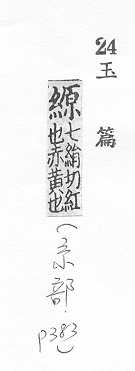 24 玉篇
縓 七絹切紅
也赤黃也
(糸部.
P383)